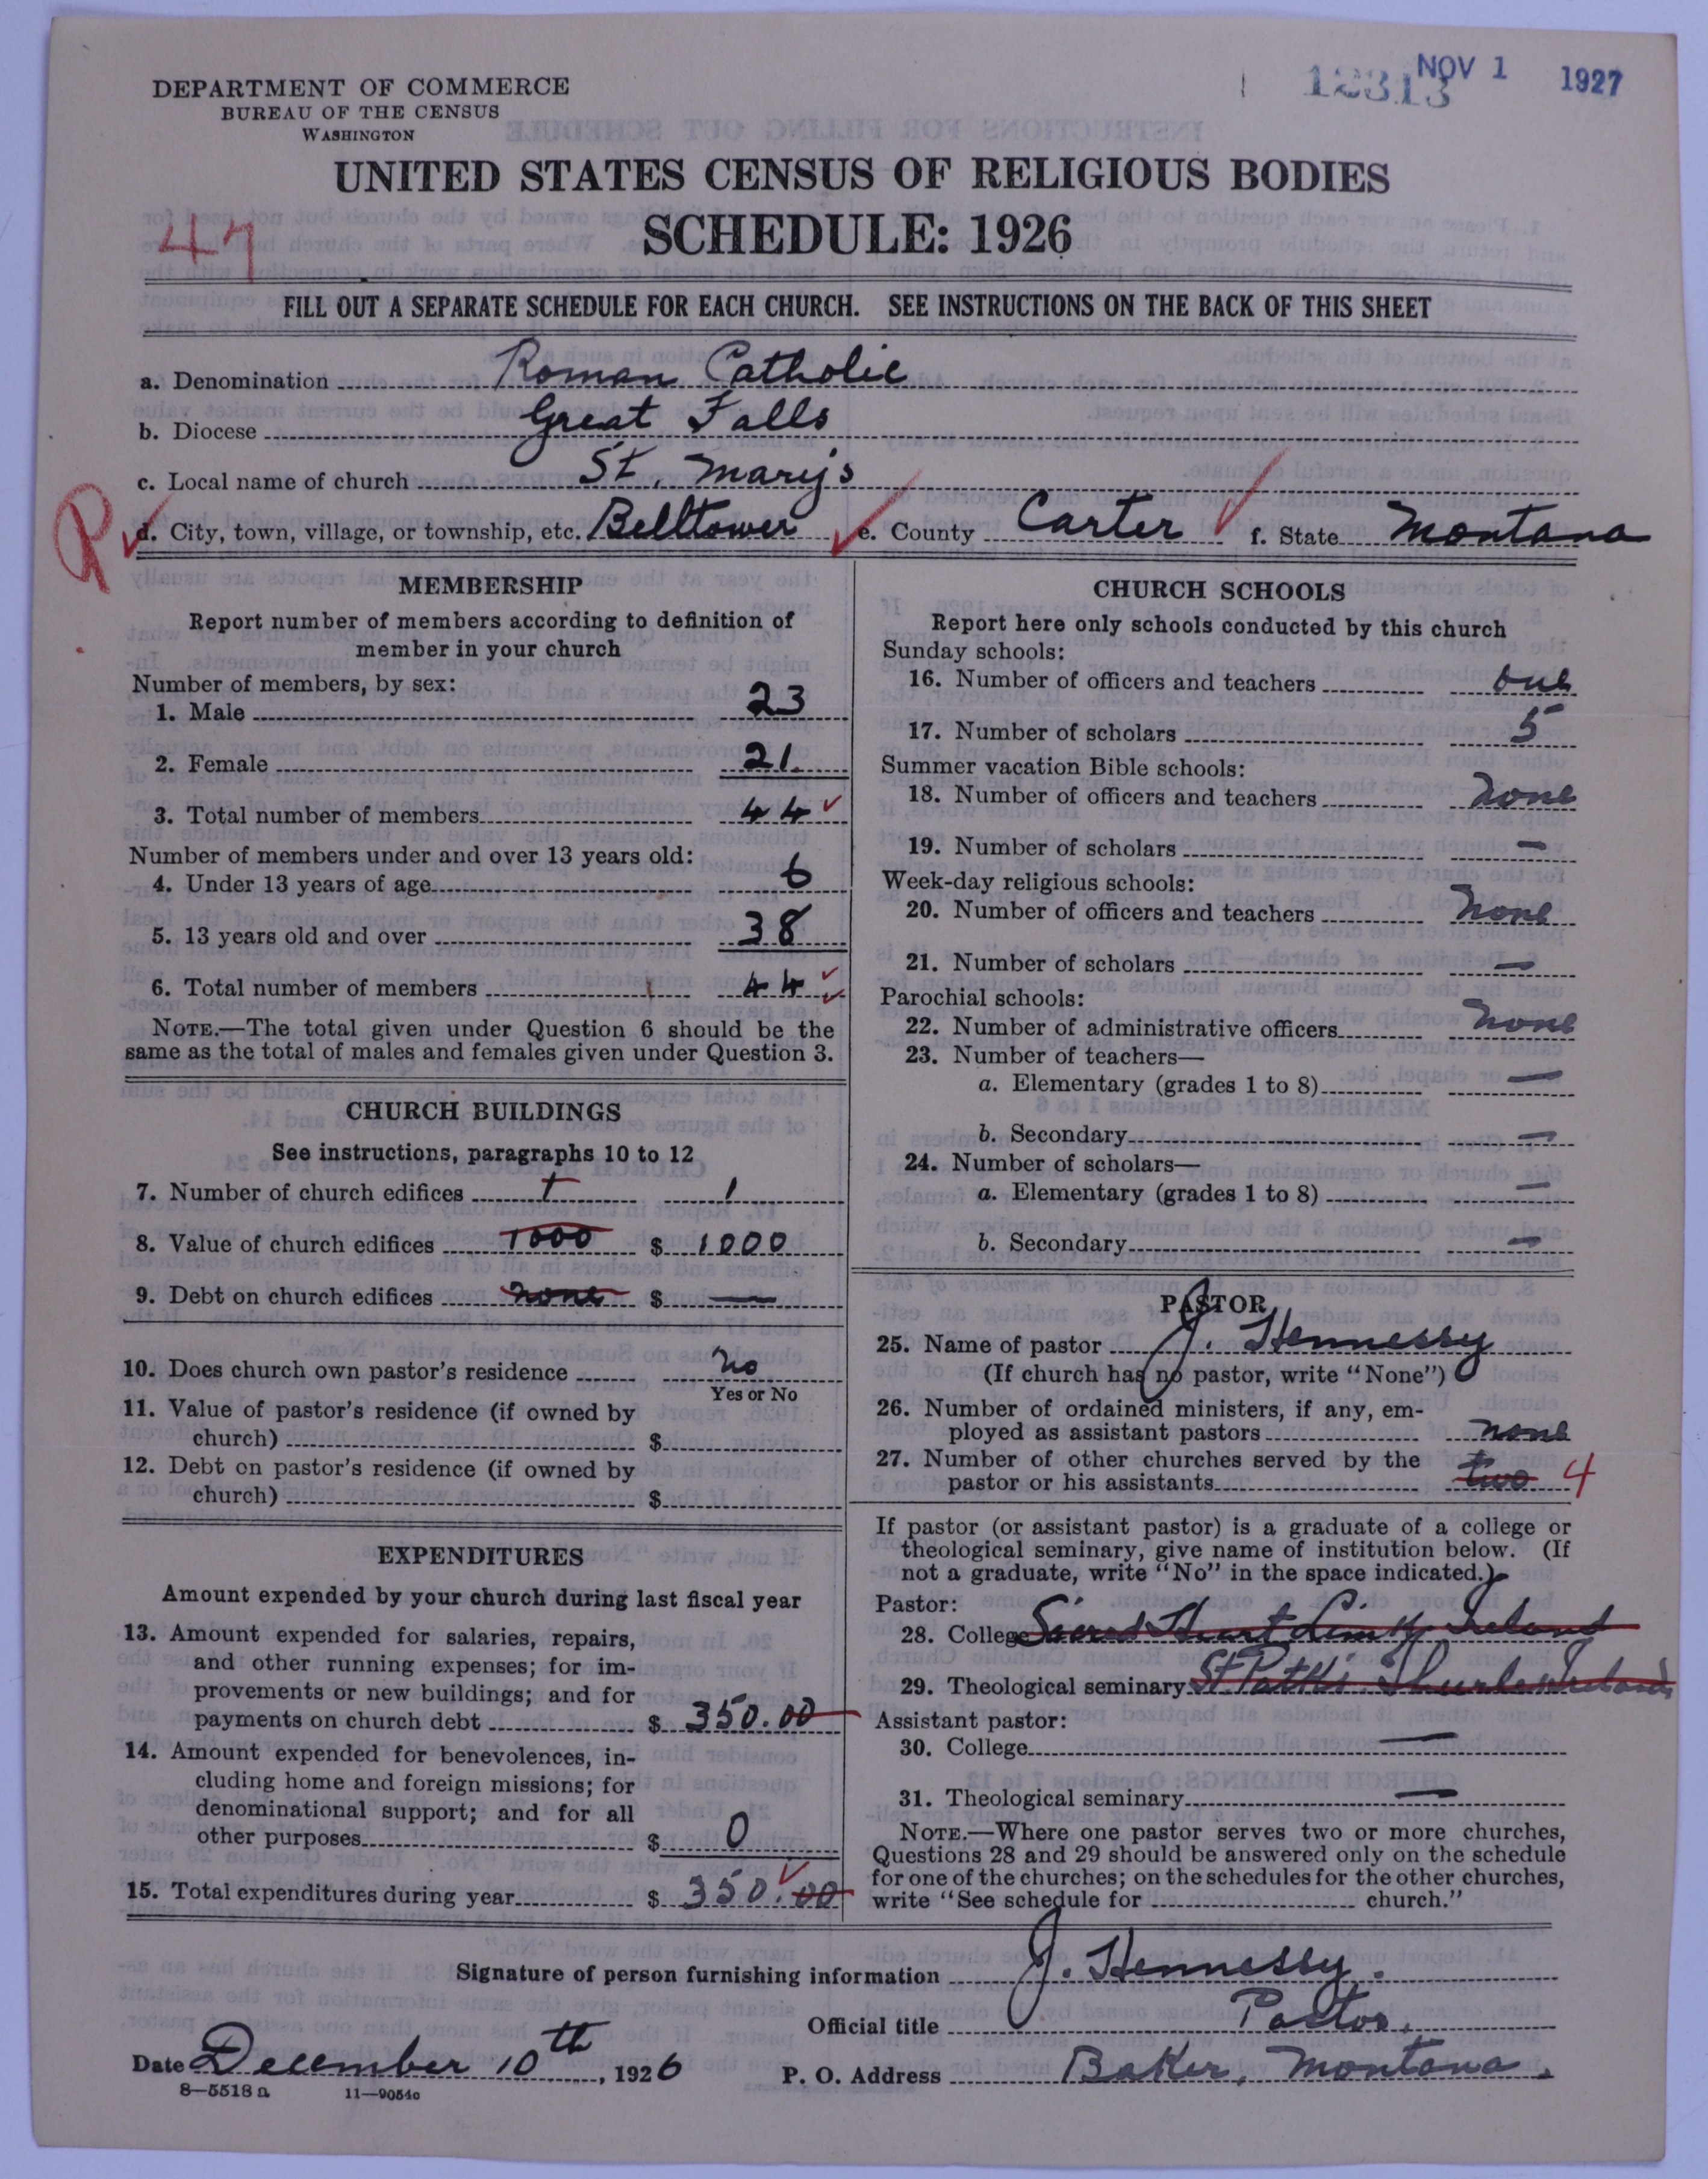 DEPARTMENT OF COMMERCE
BUREAU OF THE CENSUS
WASHINGTON
12313 NOV 1 1927
UNITED STATES CENSUS OF RELIGIOUS BODIES
SCHEDULE: 1926
47
FILL OUT A SEPARATE SCHEDULE FOR EACH CHURCH. SEE INSTRUCTIONS ON THE BACK OF THIS SHEET
a. Denomination Roman Catholic
b. Diocese Great Falls
c. Local name of church St. Mary's
R
d. City, town, village, or township, etc. Belltower e. County Carter f. State Montana
MEMBERSHIP
Report number of members according to definition of
member in your church
Number of members, by sex:
1. Male 23
2. Female 21.
3. Total number of members 44 ✓
Number of members under and over 13 years old:
4. Under 13 years of age 6
5. 13 years old and over 38
6. Total number of members 44 ✓
NOTE.—The total given under Question 6 should be the
same as the total of males and females given under Question 3.
CHURCH BUILDINGS
See instructions, paragraphs 10 to 12
7. Number of church edifices 1 1
8. Value of church edifices 1000 $ 1000
9. Debt on church edifices none $ —
10. Does church own pastor's residence no
Yes or No
11. Value of pastor's residence (if owned by
church) $
12. Debt on pastor's residence (if owned by
church) $
EXPENDITURES
Amount expended by your church during last fiscal year
13. Amount expended for salaries, repairs,
and other running expenses; for im-
provements or new buildings; and for
payments on church debt $ 350.00
14. Amount expended for benevolences, in-
cluding home and foreign missions; for
denominational support; and for all
other purposes $ 0
15. Total expenditures during year $ 350.00
CHURCH SCHOOLS
Report here only schools conducted by this church
Sunday schools:
16. Number of officers and teachers one
17. Number of scholars 5
Summer vacation Bible schools:
18. Number of officers and teachers none
19. Number of scholars —
Week-day religious schools:
20. Number of officers and teachers none
21. Number of scholars —
Parochial schools:
22. Number of administrative officers none
23. Number of teachers—
a. Elementary (grades 1 to 8) —
b. Secondary —
24. Number of scholars—
a. Elementary (grades 1 to 8) —
b. Secondary —
PASTOR
25. Name of pastor J. Hennessy
(If church has no pastor, write "None")
26. Number of ordained ministers, if any, em-
ployed as assistant pastors none
27. Number of other churches served by the
pastor or his assistants two 4
If pastor (or assistant pastor) is a graduate of a college or
theological seminary, give name of institution below. (If
not a graduate, write "No" in the space indicated.)
Pastor:
28. College Sacred Heart Ireland
29. Theological seminary St. Ireland
Assistant pastor:
30. College —
31. Theological seminary —
NOTE.—Where one pastor serves two or more churches,
Questions 28 and 29 should be answered only on the schedule
for one of the churches; on the schedules for the other churches,
write "See schedule for church."
Signature of person furnishing information J. Hennessy.
Official title Pastor.
Date December 10th, 1926 P. O. Address Baker, Montana.
8—5518 a 11—9054c